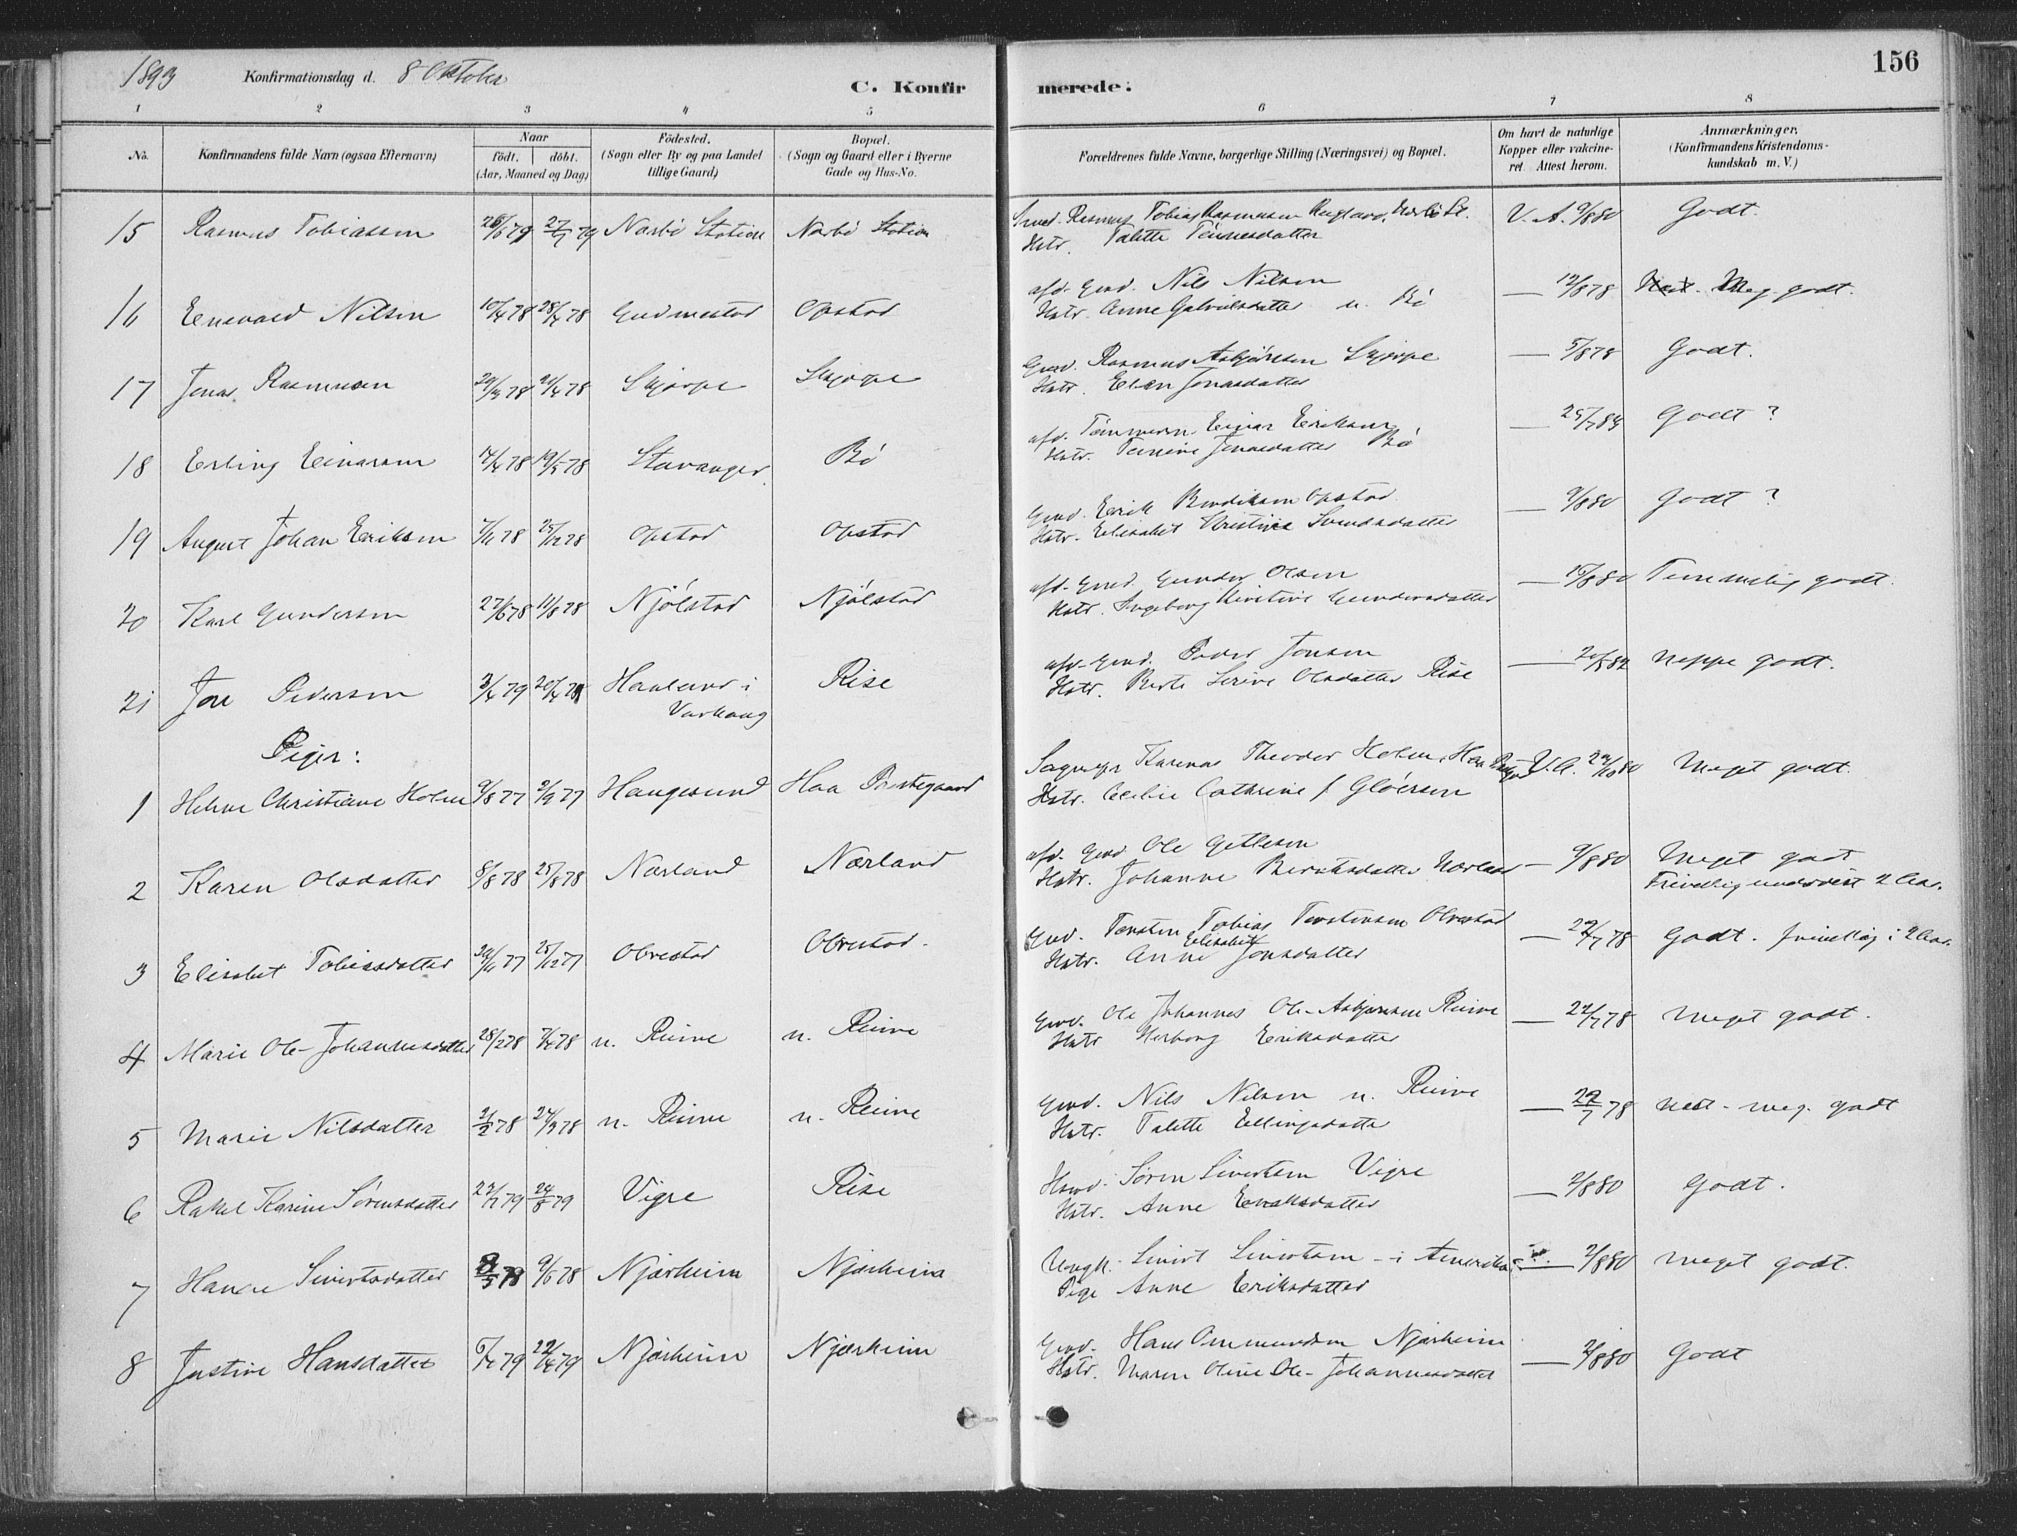 1893 Konfirmationsdag d. 8 Oktober
C. Konfirmerede:
156
1 2 3 4 5 6 7 8
No.
Konfirmandens fulde Navn (ogsaa Efternavn)
Naar
födt. döbt.
(Aar, Maaned og Dag)
Födested.
(Sogn eller By og paa Landet
tillige Gaard)
Bopæl.
(Sogn og Gaard eller i Byerne
Gade og Hus-No.
Forældrenes fulde Navne, borgerlige Stilling (Næringsvei) og Bopæl.
Om havt de naturlige
Kopper eller vakcine-
ret. Attest herom.
Anmærkninger,
(Konfirmandens Kristendoms-
kundskab m. V.)
15 Rasmus Tobiassen 79 79 Nærbö Station Nærbö Station Smed. Rasmus Tobias Rasmussen V. A. 9/8 80 Godt.
Hstr. Talette Tönnesdatter
16 Enevald Nilsen 10/4 78 28/4 78 Gudmestad Opstad afd. Gmd. Nils Nilsen — 12/8 78 Meg. godt.
Hstr. Anne Gabrielsdatter n. Bö
17 Jonas Rasmussen 29/3 78 78 Skjærpe Skjærpe Gmd. Rasmus Asbjörnsen Skjærpe — 5/8 78 Godt.
Hstr. Elen Jonasdatter
18 Erling Einarsen 14/4 78 19/5 78 Stavanger Bö afd. Tömmerm. Einar Eriksen — 25/7 84 Godt ?
Hstr. Jonasdatter Bö
19 August Johan Eriksen 7/11 78 25/12 78 Opstad Opstad Gmd. Erik Bendiksen Opstad — 9/8 80 Godt ?
Hstr. Elisabet Kristine Svendsdatter
20 Karl Gundersen 27/6 78 11/8 78 Njölstad Njölstad afd. Gmd. Gunder Olsen — 80 Temmelig godt.
Hstr. Ingeborg Kirstine Gundersdatter
21 Jon Pedersen 3/4 79 20/4 79 Haaland i Varhaug Rise afd. Gmd. Peder Jonsen — 82 neppe godt.
Hstr. Berte Serine Olsdatter Rise
Piger:
1 Helene Christiane Holm 2/8 77 2/9 77 Haugesund Haa Prestegaard Sagmgr. Karenus Theodor Holm, Haa V. A. 80 Meget godt.
Hstr. Cecilie Cathrine f. Glöersen
2 Karen Olsdatter 8/8 78 25/8 78 Nærland Nærland afd. Gmd Ole Gitlesen — 9/8 80 Meget godt
Hstr. Johanne Nærland Frivillig undervist 2 Aar.
3 Elisabet Tobiasdatter 77 25/12 77 Obrestad Obrestad. Gmd. Torsten Tobias Torstensen Obrestad — 22/7 78 Godt. frivillig i 2 Aar.
Hstr. Anne Elisabet Jonsdatter
4 Marie Ole-Johannesdatter 28/2 78 7/4 78 n. Reime n. Reime Gmd. Ole Johannes Ole-Asbjörnsen Reime — 22/7 78 Meget godt.
Hstr Herborg Eriksdatter
5 Marie Nilsdatter 21/2 78 24/3 78 n. Reime n. Reime Gmd. Nils Nilsen n. Reime — 22/7 78 meg. godt
Hstr. Talette Ellingsdatter
6 Rakel Karine Sörensdatter 27/7 79 24/8 79 Vigre Rise Hsmd. Sören Sivertsen Vigre — 2/8 80 Godt.
Hstr. Anne Eriksdatter
7 Hanne Sivertsdatter 8/5 78 9/6 78 Njærheim Njærheim Ungk. Sivert Sivertsen – i Amerika — 2/8 80 meget godt.
Pige Anne Eriksdatter
8 Justine Hansdatter 6/4 79 22/4 79 Njærheim Njærheim Gmd. Hans Ommundsen Njærheim — 2/8 80 Godt
Hstr. Maren Oline Ole-Johannesdatter